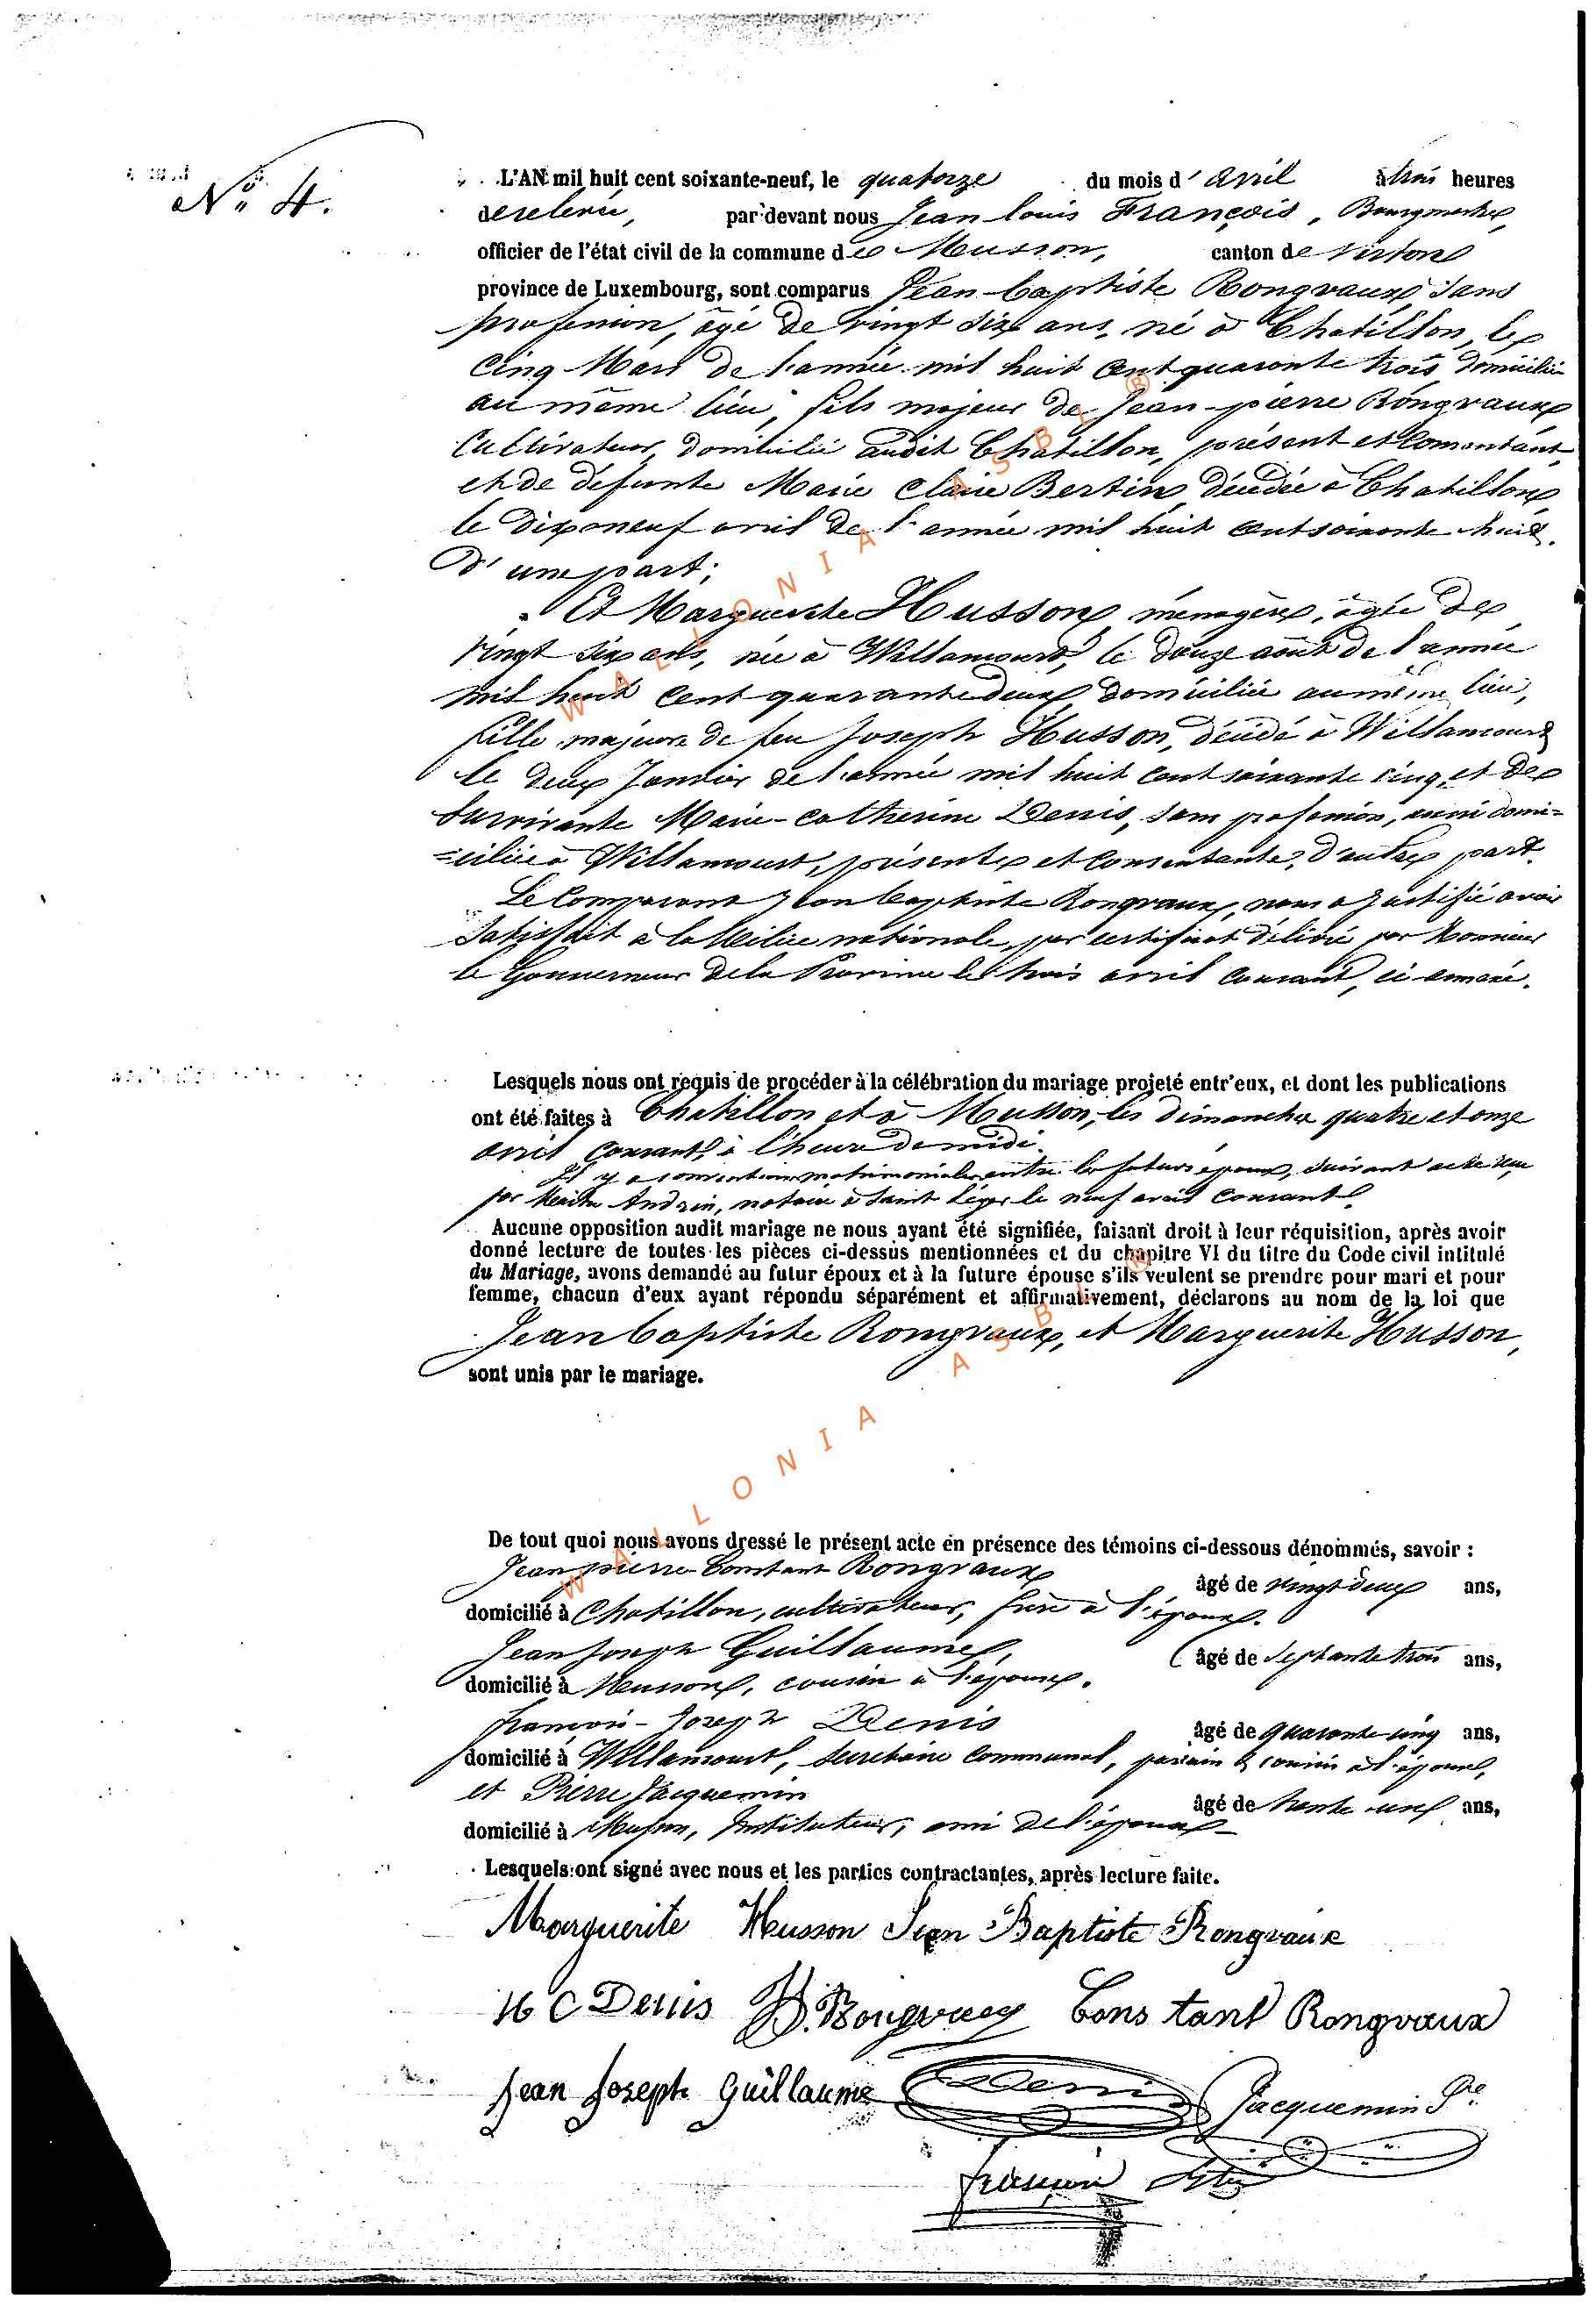 N° 4.
L'AN mil huit cent soixante-neuf, le quatorze du mois d'avril à trois heures
de relevée, par devant nous Jean louis François, Bourgmestre,
officier de l'état civil de la commune de Musson, canton de Virton
province de Luxembourg, sont comparus Jean-baptiste Rongvaux, sans
profession, âgé de vingt six ans, né à Chatillon, le
cinq Mars de l'année mil huit cent quarante trois domicilié
au même lieu, fils majeur de Jean-pierre Rongvaux
Cultivateur, domicilié audit Chatillon, présent et Consentant,
et de défunte Marie Claire Bertin, décédée à Chatillon,
le dix neuf avril de l'année mil huit cent soixante huit,
d'une part;
Et Marguerite Husson, ménagère, âgée de
vingt six ans, née à Willancourt, le douze août de l'année
mil huit cent quarante deux domiciliée au même lieu,
fille majeure de feu Joseph Husson, décédé à Willancourt
le deux Janvier de l'année mil huit cent soixante cinq, et de
survivante Marie-Catherine Denis, sans profession, aussi domi=
=ciliée à Willancourt, présente et consentante, d'autre part.
Le Comparant Jean baptiste Rongvaux, nous a justifié avoir
Satisfait à la Milice nationale, par certificat délivré par Monsieur
le Gouverneur de la Province le trois avril courant, ci annexé.
Lesquels nous ont requis de procéder à la célébration du mariage projeté entr'eux, et dont les publications
ont été faites à Chatillon et à Musson, les dimanches quatre et onze
avril courant, à l'heure de midi.
Il y a conventions matrimoniales entre les futurs époux, suivant acte reçu
par Maître Andrin, notaire à Saint Léger le neuf avril courant.
Aucune opposition audit mariage ne nous ayant été signifiée, faisant droit à leur réquisition, après avoir
donné lecture de toutes les pièces ci-dessus mentionnées et du chapitre VI du titre du Code civil intitulé
du Mariage, avons demandé au futur époux et à la future épouse s'ils veulent se prendre pour mari et pour
femme, chacun d'eux ayant répondu séparément et affirmativement, déclarons au nom de la loi que
Jean baptiste Rongvaux, et Marguerite Husson,
sont unis par le mariage.
De tout quoi nous avons dressé le présent acte en présence des témoins ci-dessous dénommés, savoir :
Jean pierre Constant Rongvaux âgé de vingt deux ans,
domicilié à Chatillon, cultivateur, frère à l'époux.
Jean Joseph Guillaume, âgé de septante trois ans,
domicilié à Musson, cousin à l'époux.
François-Joseph Denis âgé de quarante cinq ans,
domicilié à Willancourt, Secrétaire communal, parrain & cousin à l'épouse,
et Pierre Jacquemin âgé de trente un ans,
domicilié à Musson, Instituteur, ami de l'époux
Lesquels ont signé avec nous et les parties contractantes, après lecture faite.
Marguerite Husson Jean Baptiste Rongvaux
M C Denis Rongvaux Constant Rongvaux
Jean Joseph Guillaume Denis Jacquemin Pre
François
WALLONIA ASBL ®
WALLONIA ASBL ®